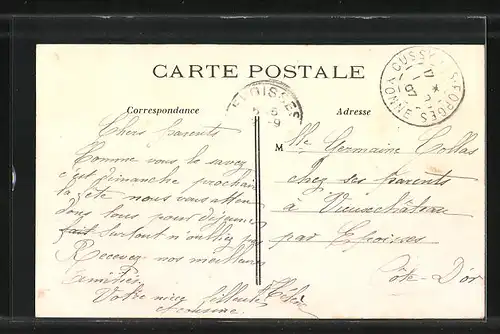 CARTE POSTALE
Correspondance
Adresse
CUSSY LES FORGES
YONNE
17
07
Chers parents
Comme vous le savez
c'est Dimanche prochain
la fête nous vous atten
dons tous pour déjeuner
surtout n'oubliez pas
Recevez nos meilleures
Amitiés
Votre nièce filleule
et cousine
Mlle Germaine Collas
chez ses parents
à Vieuxchâteau
par Epoisses
Côte D'or